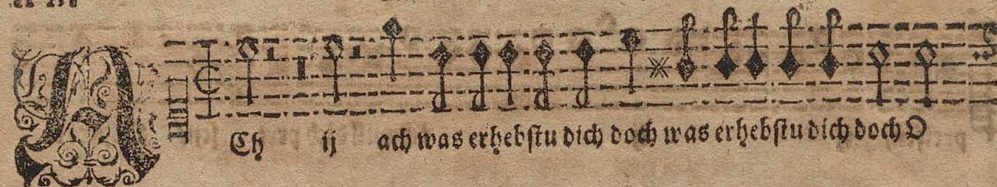 ACh ij ach was erhebstu dich doch was erhebstu dich doch O